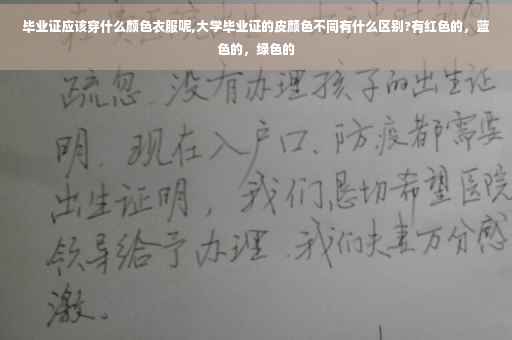 毕业证应该穿什么颜色衣服呢,大学毕业证的皮颜色不同有什么区别?有红色的，蓝
色的，绿色的
疏忽、没有办理孩子的出生证
明、现在入户口、防疫都需要
出生证明，我们恳切希望医院
领导给予办理、我们夫妻万分感
激。